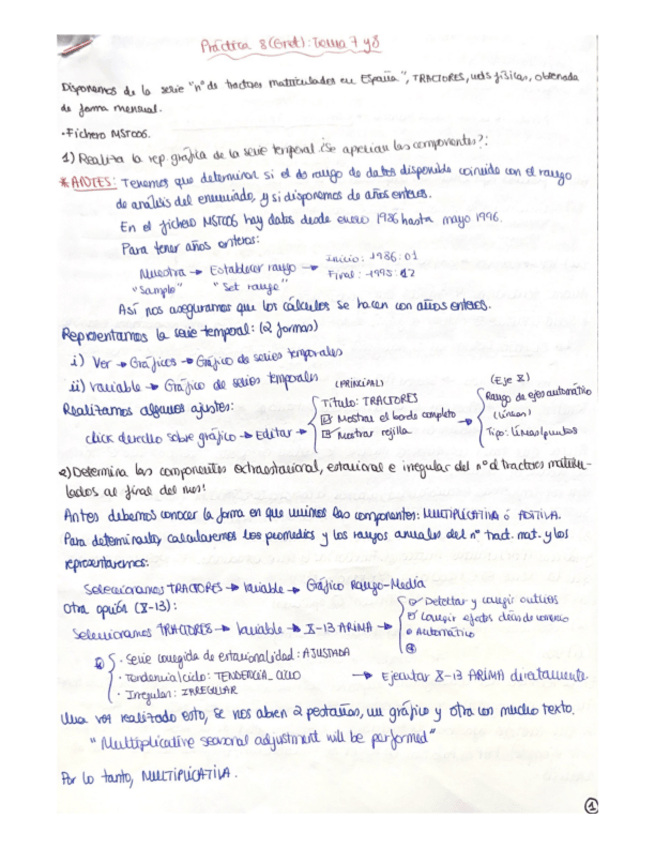 Práctica 8 (Gretl): Tema 7 y 8
Disponemos de la serie "nº de tractores matriculados en España", TRACTORES, uds físicas, obtenida
de forma mensual.
·Fichero MST006.
1) Realiza la rep. gráfica de la serie temporal ¿Se aprecian las componentes?:
* ANTES: Tenemos que determinar si el rango de datos disponible coincide con el rango
de análisis del enunciado, y si disponemos de años enteros.
En el fichero MST006 hay datos desde enero 1986 hasta mayo 1996.
Para tener años enteros:
Muestra → Establecer rango → Inicio: 1986:01
"Sample" "Set range" Final: 1995:12
Así nos aseguramos que los cálculos se hacen con años enteros.
Representamos la serie temporal: (2 formas)
i) Ver → Gráficos → Gráfico de series temporales
ii) Variable → Gráfico de series temporales
Realizamos algunos ajustes:
click derecho sobre gráfico → Editar →
(PRINCIPAL)
Título: TRACTORES
Mostrar el borde completo
Mostrar rejilla
→
(Eje X)
Rango de ejes automático
(Líneas)
Tipo: líneas/puntos
2) Determina las componentes extraestacional, estacional e irregular del nº de tractores matricu-
lados al final del mes:
Antes debemos conocer la forma en que unimos las componentes: MULTIPLICATIVA ó ADITIVA.
Para determinarlo, calcularemos los promedios y los rangos anuales del nº tract. mat. y los
representaremos:
Seleccionamos TRACTORES → Variable → Gráfico Rango-Media
Otra opción (X-13):
Seleccionamos TRACTORES → Variable → X-13 ARIMA →
Detectar y corregir outliers
Corregir efectos días de comercio
Automático
· Serie corregida de estacionalidad: AJUSTADA
· Tendencia/ciclo: TENDENCIA_CICLO
· Irregular: IRREGULAR
→ Ejecutar X-13 ARIMA directamente
Una vez realizado esto, se nos abren 2 pestañas, un gráfico y otra con mucho texto.
"Multiplicative seasonal adjustment will be performed"
Por lo tanto, MULTIPLICATIVA.
1